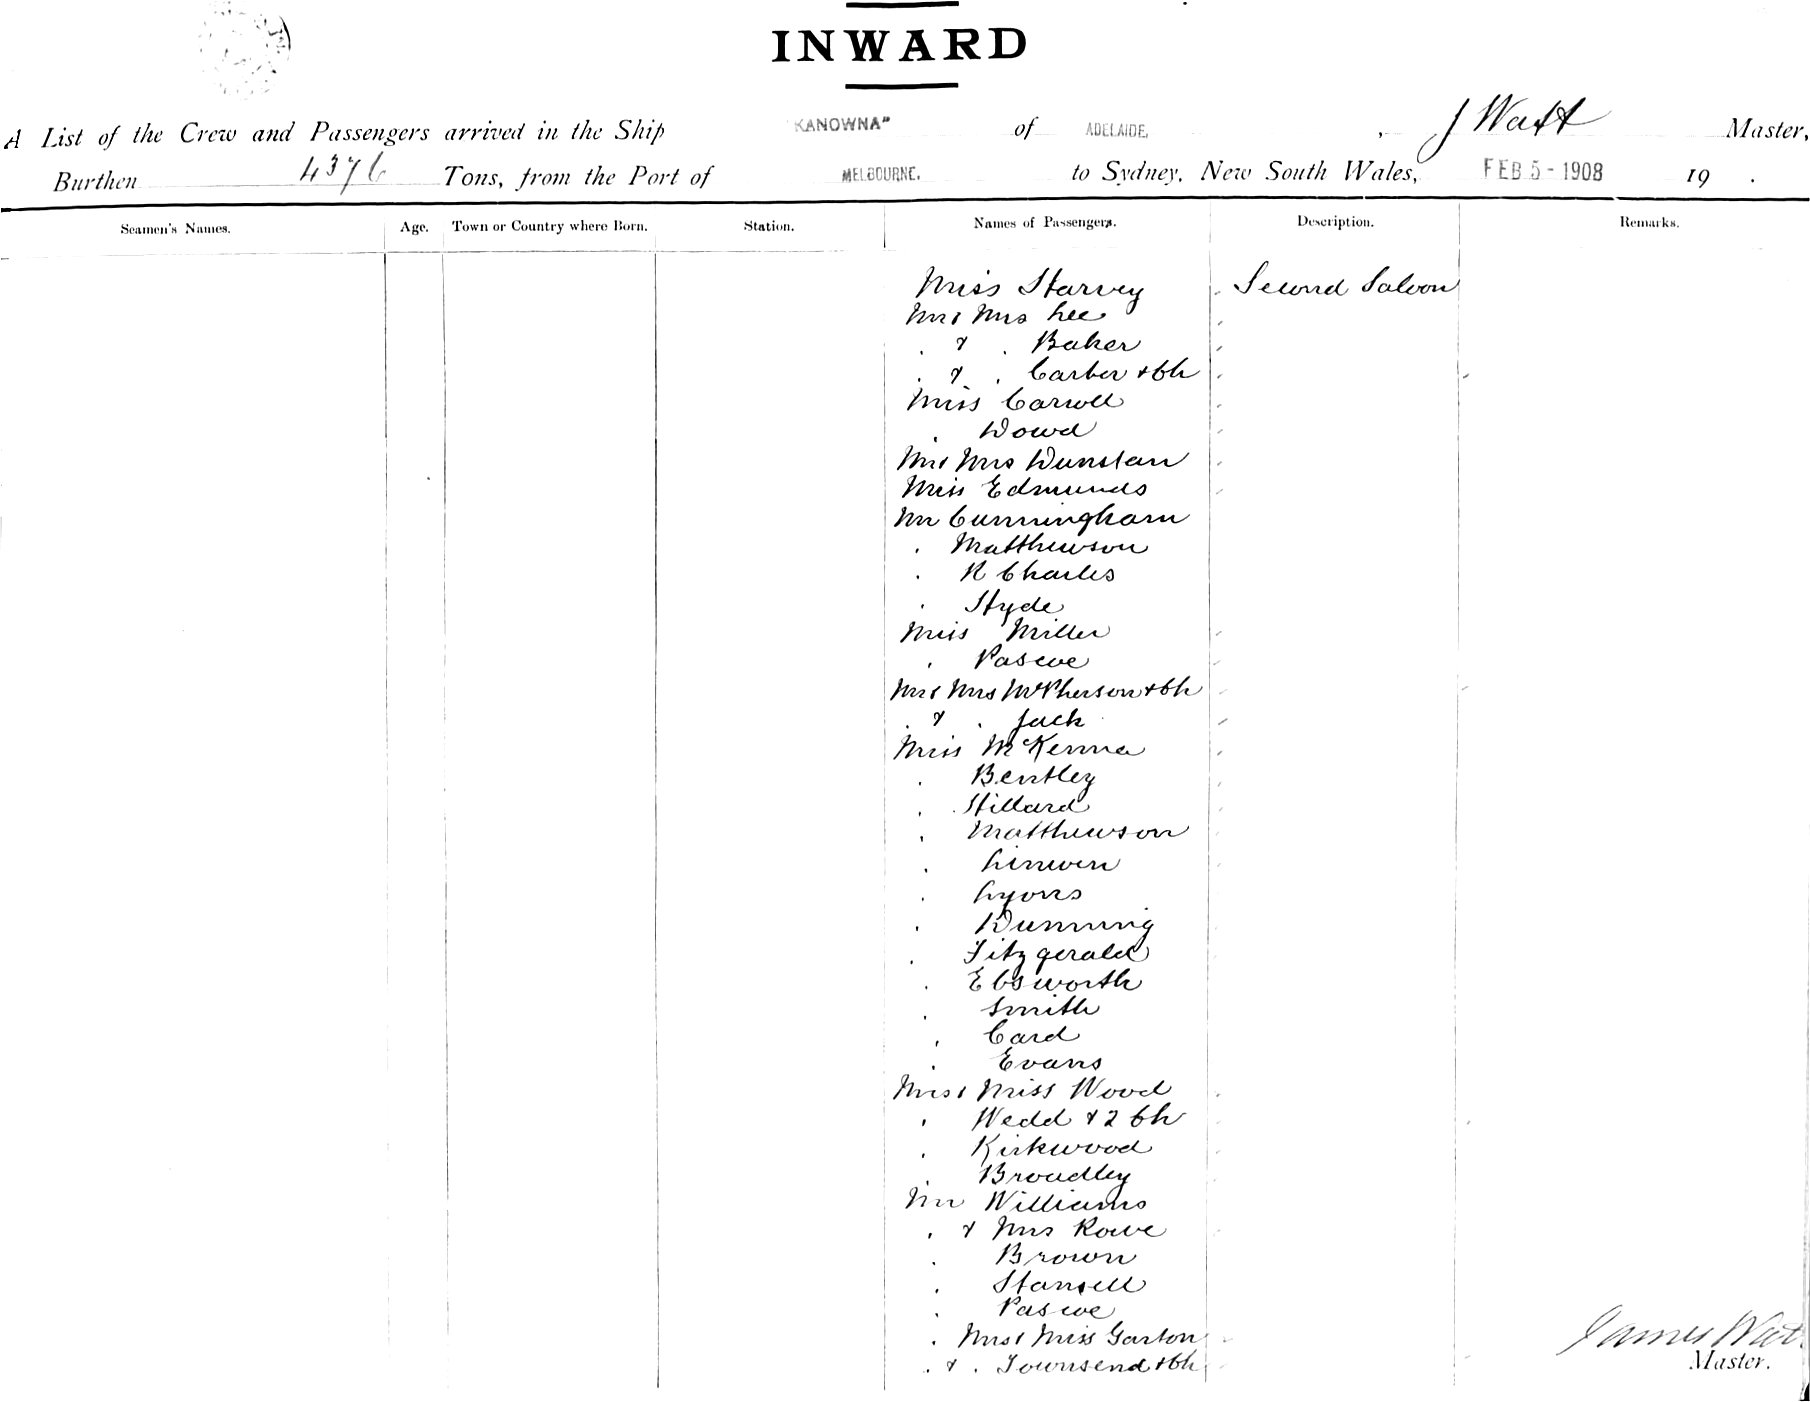 INWARD
A List of the Crew and Passengers arrived in the Ship "KANOWNA" of ADELAIDE, , J Watt Master,
Burthen 4376 Tons, from the Port of MELBOURNE. to Sydney, New South Wales, FEB 5 - 1908 19 .
Seamen's Names. Age. Town or Country where Born. Station. Names of Passengers. Description. Remarks.
Miss Harvey Second Saloon
Mr & Mrs Lee
. & . Baker
. & . Carber & Ch
Miss Carroll
. Dowd
Mr & Mrs Dunstan
Miss Edmunds
Mr Cunningham
. Matthewson
. R Charles
. Hyde
Miss Miller
. Pascoe
Mr & Mrs McPherson & Ch
. & . Jack
Miss McKenna
. Bentley
. Hillard
. Matthewson
. Linwen
. Lyons
. Dunning
. Fitzgerald
. Ebsworth
. Smith
. Card
. Evans
Mrs & Miss Wood
. Wedd & 2 Ch
. Kirkwood
. Broadley
Mr Williams
. & Mrs Rowe
. Brown
. Stansell
. Pascoe
. Mrs & Miss Garton
. & . Townsend & Ch
James Watt
Master.